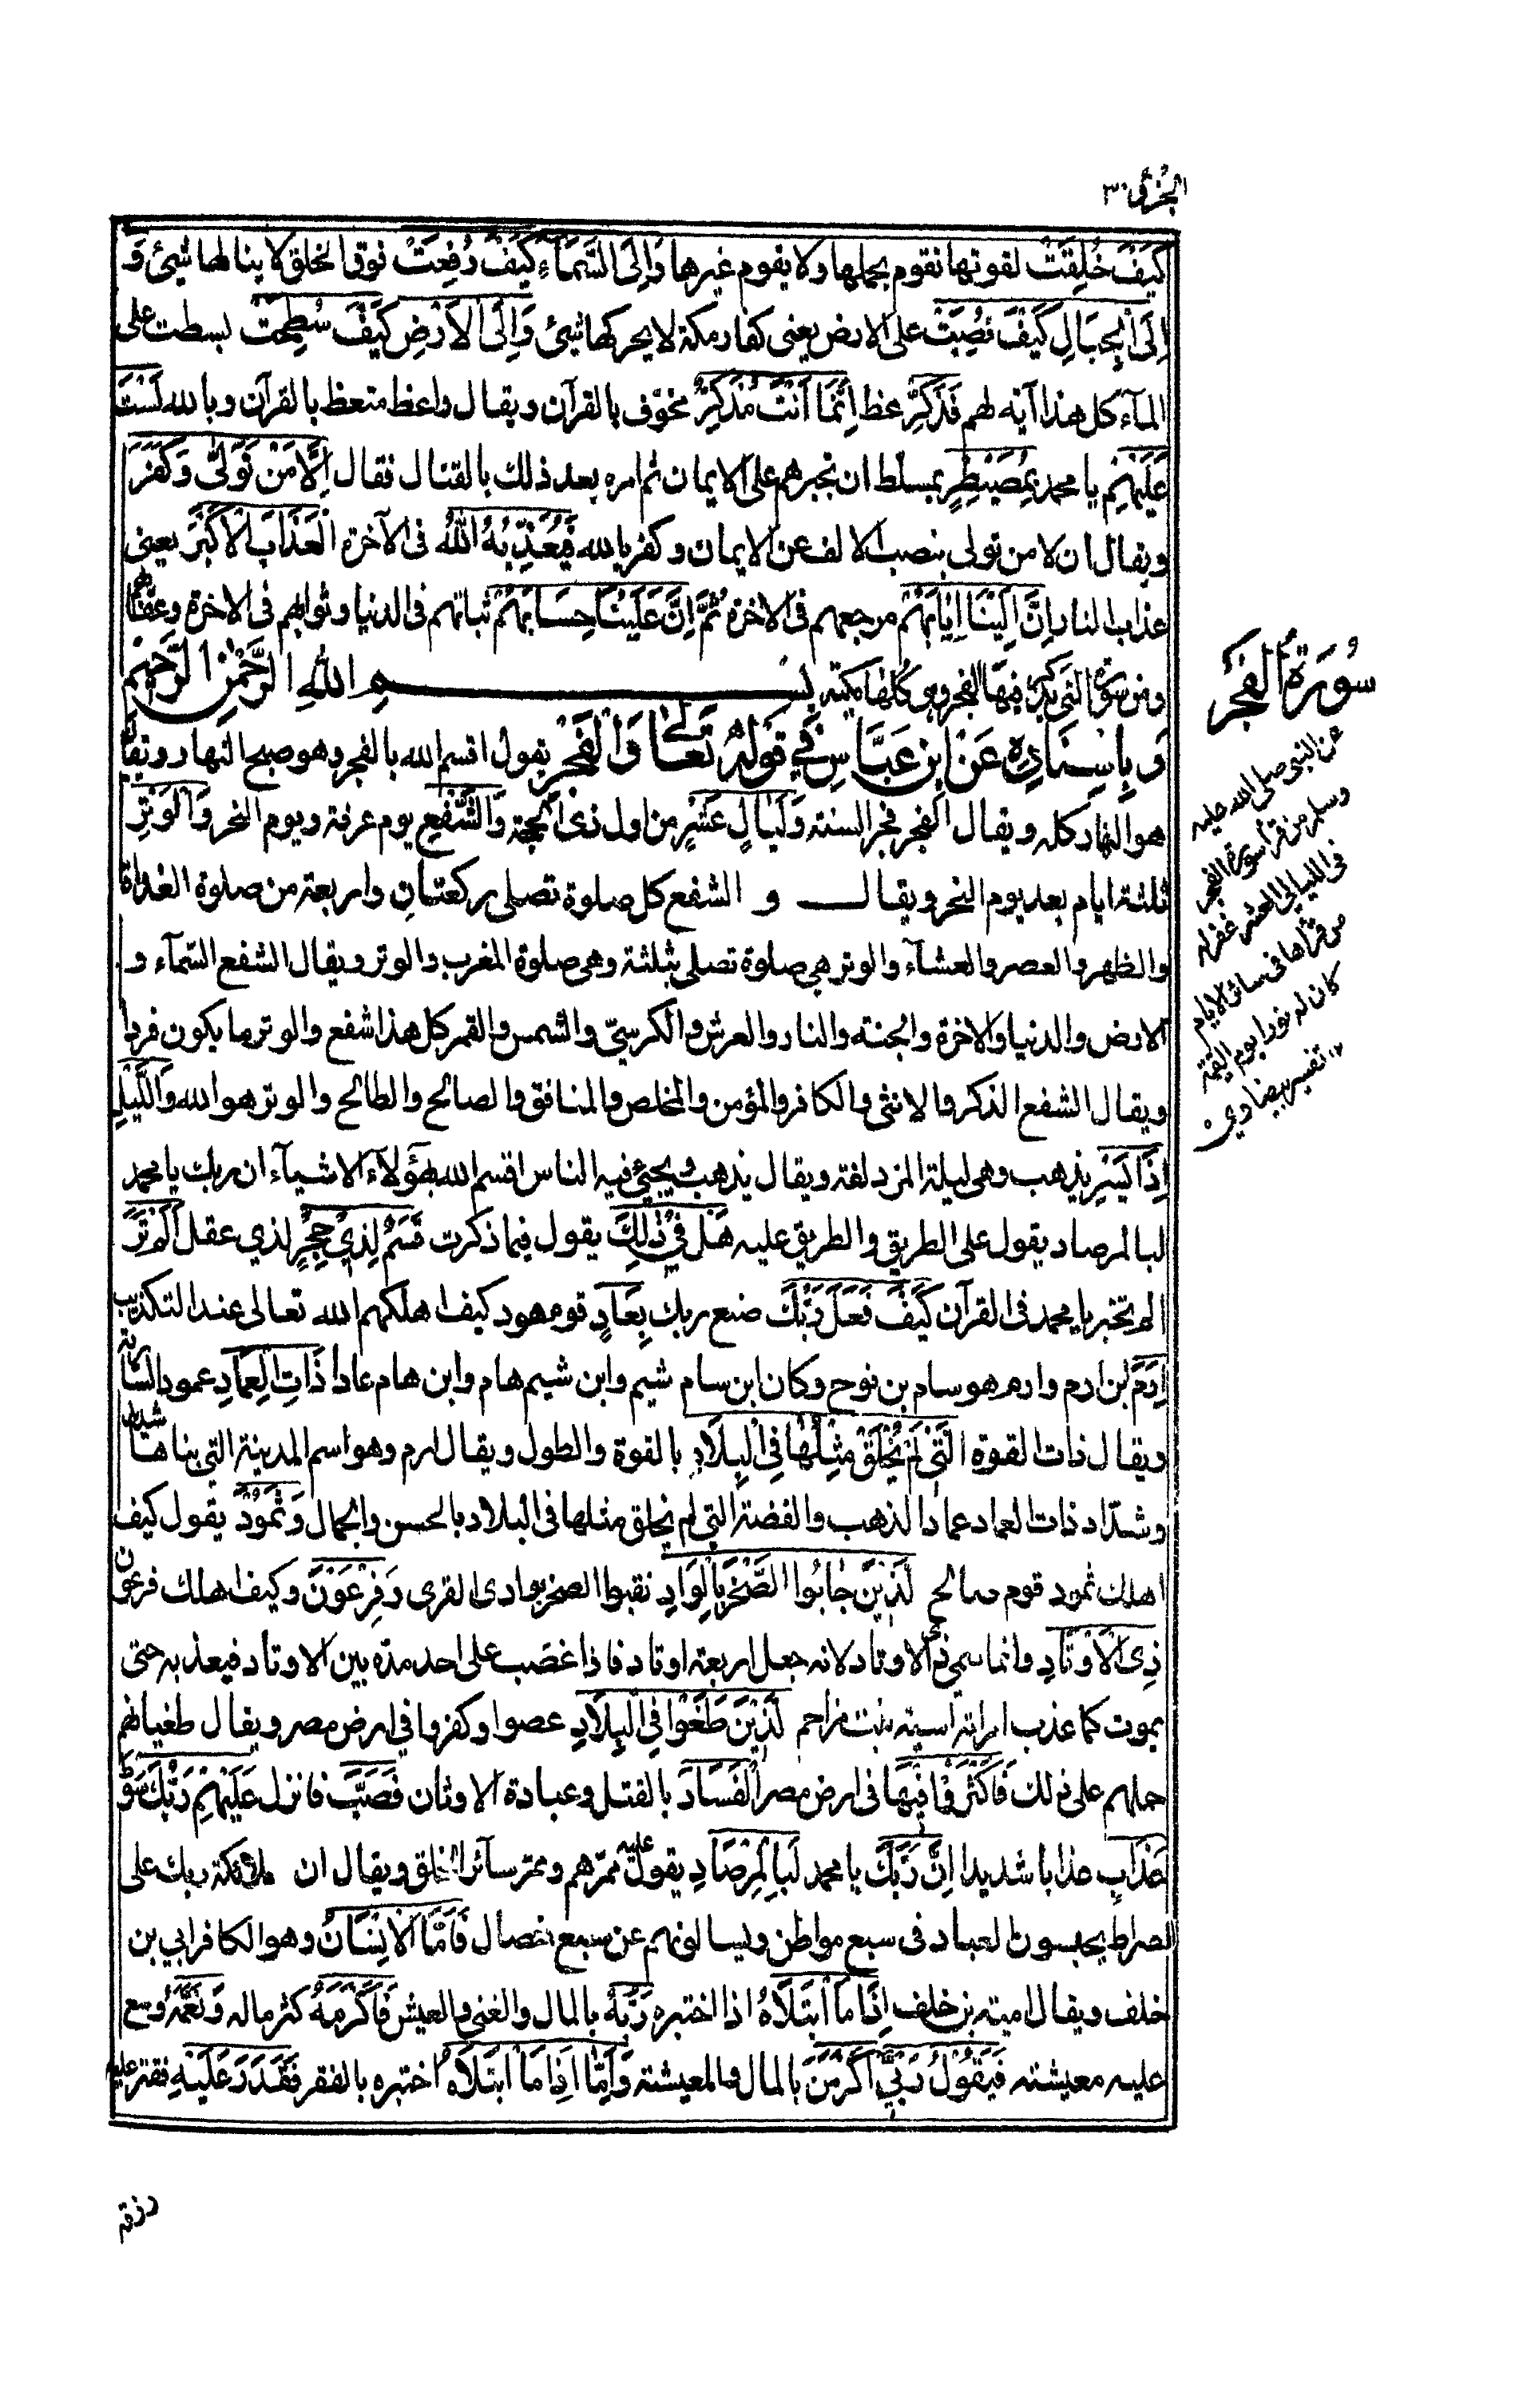 الجزؤ ٣٠
كَيْفَ خُلِقَتْ لقوتها تقوم بحملها ولا يقوم غيرها وَاِلَى السَّمَآءِ كَيْفَ رُفِعَتْ فوق الخلق لا ينالها شيئ وَ
اِلَى الْجِبَالِ كَيْفَ نُصِبَتْ على الارض يعنى كفار مكة لا يحركها شيئ وَاِلَى الْاَرْضِ كَيْفَ سُطِحَتْ بسطت على
المآء كل هذا آية لهم فَذَكِّرْ عظ اِنَّمَا اَنْتَ مُذَكِّرٌ مخوّف بالقرآن ويقال واعظ متعظ بالقرآن وبالله لَسْتَ
عَلَيْهِمْ يا محمد بِمُصَيْطِرٍ بمسلط ان تجبرهم على الايمان ثم امره بعد ذلك بالقتال فقال اِلَّا مَنْ تَوَلّٰى وَكَفَرَ
ويقال ان لا من تولى بنصب الالف عن الايمان وكفر بالله فَيُعَذِّبُهُ اللّٰهُ فى الآخرة الْعَذَابَ الْاَكْبَرَ يعنى
عذاب النار اِنَّ اِلَيْنَا اِيَابَهُمْ مرجعهم فى الاخرة ثُمَّ اِنَّ عَلَيْنَا حِسَابَهُمْ ثباتهم فى الدنيا وثوابهم فى الاخرة وعقابهم
ومن سورة التى يذكر فيها الفجر وهى كلها مكية بسم الله الرَّحْمٰنِ الرَّحِيْمِ
وَبِاِسْنَادِهٖ عَنْ اِبْنِ عَبَّاسٍ فِيْ قَوْلِهٖ تَعَالٰى وَالْفَجْرِ يقول اقسم الله بالفجر وهو صبح النهار ويقال
هو النهار كله ويقال الفجر فجر السنة وَلَيَالٍ عَشْرٍ من اول ذى الحجة وَالشَّفْعِ يوم عرفة ويوم النحر وَالْوَتْرِ
ثلثة ايام بعد يوم النحر ويقال و الشفع كل صلوة تصلى ركعتان واربعة من صلوة الغداة
والظهر والعصر والعشآء والوتر هى صلوة تصلى بثلثة وهى صلوة المغرب والوتر ويقال الشفع السمآء و
الارض والدنيا والاخرة والجنة والنار والعرش والكرسيّ والشمس والقمر كل هذا شفع والوتر ما يكون فردا
ويقال الشفع الذكر والانثى والكافر والمؤمن والمخلص والمنافق والصالح والطالح والوتر هو الله وَالَّيْلِ
اِذَا يَسْرِ يذهب وهى ليلة المزدلفة ويقال يذهب ويجيئ فيه الناس اقسم الله بهٰؤلاء الاشيآء ان ربك يا محمد
لبالمرصاد يقول على الطريق والطريق عليه هَلْ فِيْ ذٰلِكَ يقول فيما ذكرت قَسَمٌ لِّذِيْ حِجْرٍ لذي عقل اَلَمْ تَرَ
الم تخبر يا محمد فى القرآن كَيْفَ فَعَلَ رَبُّكَ صنع ربك بِعَادٍ قوم هود كيف اهلكهم الله تعالى عند التكذيب
اِرَمَ ابن ارم وارم هو سام بن نوح وكان ابن سام شيم وابن شيم هام وابن هام عادا ذَاتِ الْعِمَادِ عمود السارية
ويقال ذات القوة الَّتِيْ لَمْ يُخْلَقْ مِثْلُهَا فِى الْبِلَادِ بالقوة والطول ويقال ارم وهو اسم المدينة التي بناها شديد
وشدّاد ذات العماد عماد الذهب والفضة التي لم يخلق مثلها فى البلاد بالحسن والجمال وَثَمُوْدَ يقول كيف
اهلك ثمود قوم صالح الَّذِيْنَ جَابُوا الصَّخْرَ بِالْوَادِ نقبوا الصخر بوادى القرى وَفِرْعَوْنَ وكيف اهلك فرعون
ذِى الْاَوْتَادِ وانما سمى ذى الاوتاد لانه جعل اربعة اوتاد فاذا غضب على احد مدّه بين الاوتاد فيعذبه حتى
يموت كما عذب امراته اسية بنت مزاحم الَّذِيْنَ طَغَوْا فِى الْبِلَادِ عصوا وكفروا في ارض مصر ويقال طغيانهم
حملهم على ذلك فَاَكْثَرُوْا فِيْهَا فى ارض مصر الْفَسَادَ بالقتل وعبادة الاوثان فَصَبَّ فانزل عَلَيْهِمْ رَبُّكَ سَوْطَ
عَذَابٍ عذابا شديدا اِنَّ رَبَّكَ يا محمد لَبِالْمِرْصَادِ يقول عليه ممرّهم وممرّ سآئر الخلق ويقال ان ملائكة ربك على
الصراط يحبسون العباد فى سبع مواطن ويسالونهم عن سبع خصال فَاَمَّا الْاِنْسَانُ وهو الكافر ابي بن
خلف ويقال امية بن خلف اِذَا مَا ابْتَلَاهُ اذا اختبره رَبُّهٗ بالمال والغنى والعيش فَاَكْرَمَهٗ كثر ماله وَنَعَّمَهٗ وسع
عليه معيشته فَيَقُوْلُ رَبِّيْ اَكْرَمَنِ بالمال والمعيشة وَاَمَّا اِذَا مَا ابْتَلَاهُ اختبره بالفقر فَقَدَرَ عَلَيْهِ فقتر عليه
رزقه
سُوْرَةُ الْفَجْرِ
عن النبى صلى الله عليه
وسلم من قرأ سورة الفجر
فى الليالى العشر غفر له
من قرأها فى سائر الايام
كان له نورا يوم القيمة
١٢ تفسير بيضاوي